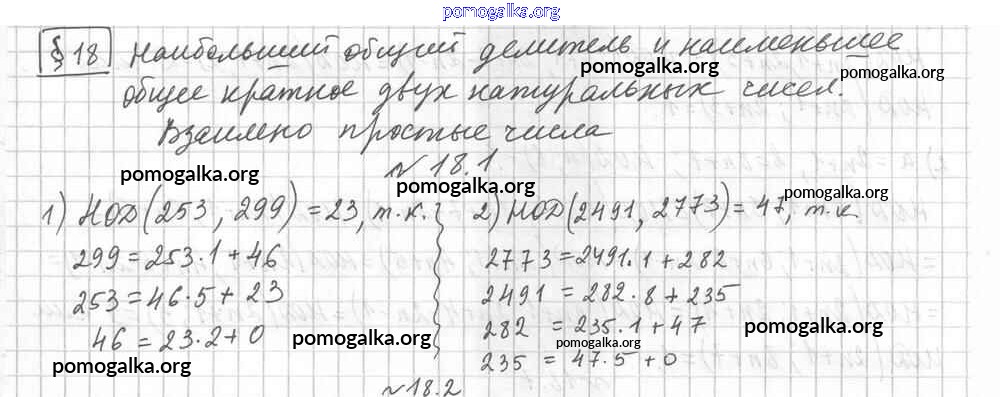 pomogalka.org
§ 18 Наибольший общий делитель и наименьшее
pomogalka.org
pomogalka.org
общее кратное двух натуральных чисел.
Взаимно простые числа
№ 18.1
pomogalka.org
pomogalka.org
pomogalka.org
1) НОД(253, 299) = 23, т.к.
299 = 253·1 + 46
253 = 46·5 + 23
46 = 23·2 + 0
pomogalka.org
pomogalka.org
2) НОД(2491, 2773) = 47, т.к.
2773 = 2491·1 + 282
2491 = 282·8 + 235
282 = 235·1 + 47
235 = 47·5 + 0
pomogalka.org
pomogalka.org
№ 18.2